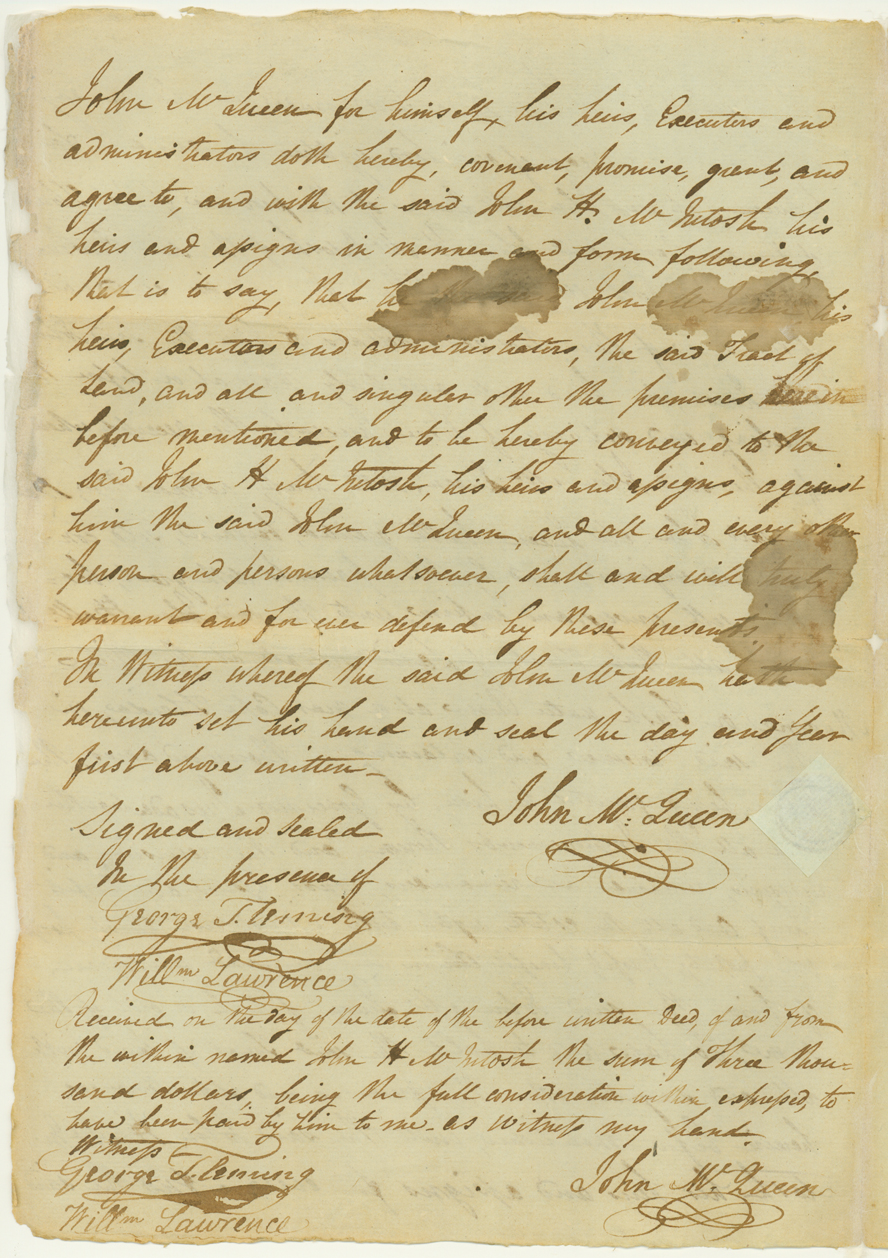 John McQueen for himself, his heirs, Executors and
administrators doth hereby, covenant, promise, grant, and
agree to, and with the said John H. McIntosh his
heirs and assigns in manner and form following,
that is to say, that he the said John McQueen his
heirs, Executors and administrators, the said Tract of
Land, and all and singular other the premises herein
before mentioned, and to be hereby conveyed to the
said John H McIntosh, his heirs and assigns, against
him the said John McQueen, and all and every other
person and persons whatsoever, shall and will truly
warrant and for ever defend by these presents.
In Witness whereof the said John McQueen hath
hereunto set his hand and seal the day and Year
first above written_
John Mc. Queen
Signed and sealed
In the presence of
George Fleming
Willm Lawrence
Received on the day of the date of the before written Deed, of and from
the within named John H McIntosh the sum of Three thou-
sand dollars, being the full consideration within expressed, to
have been paid by him to me_ as witness my hand
Witness
George Fleming
John Mc. Queen
Willm Lawrence